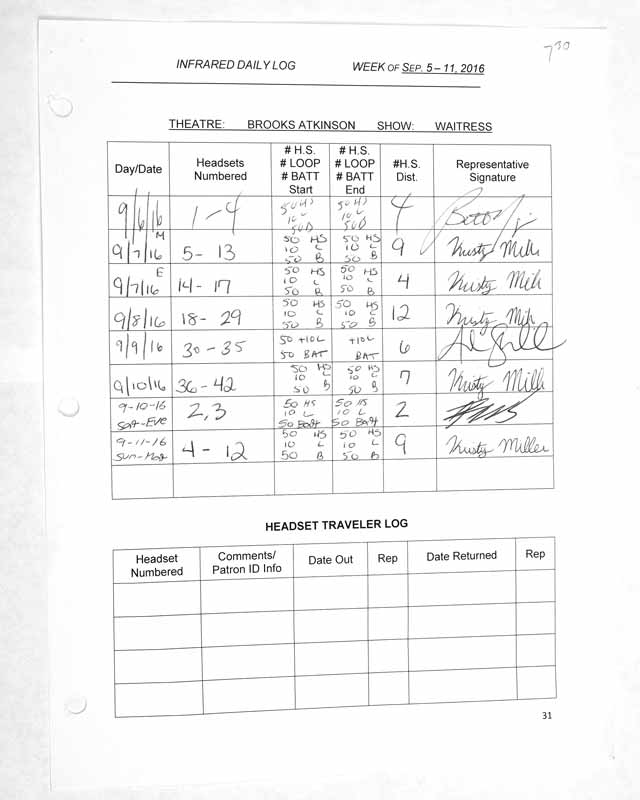 7 30
INFRARED DAILY LOG WEEK OF SEP. 5 – 11, 2016
THEATRE: BROOKS ATKINSON SHOW: WAITRESS
Day/Date
Headsets
Numbered
# H.S.
# LOOP
# BATT
Start
# H.S.
# LOOP
# BATT
End
#H.S.
Dist.
Representative
Signature
9/6/16
1-4
50 HS
10 L
50 B
50 HS
10 L
50 B
4
M
9/7/16
5- 13
50 HS
10 L
50 B
50 HS
10 L
50 B
9
Kristy Mill
E
9/7/16
14- 17
50 HS
10 L
50 B
50 HS
10 L
50 B
4
Kristy Mill
9/8/16
18- 29
50 HS
10 L
50 B
50 HS
10 L
50 B
12
Kristy Mill
9/9/16
30 - 35
50 +10L
50 BAT
+10L
BAT
6
9/10/16
36-42
50 HS
10 L
50 B
50 HS
10 L
50 B
7
Kristy Mill
9-10-16
Sat-Eve
2,3
50 HS
10 L
50 Batt
50 HS
10 L
50 Batt
2
9-11-16
Sun-Mat
4 - 12
50 HS
10 L
50 B
50 HS
10 L
50 B
9
Kristy Miller
HEADSET TRAVELER LOG
Headset
Numbered
Comments/
Patron ID Info
Date Out
Rep
Date Returned
Rep
31